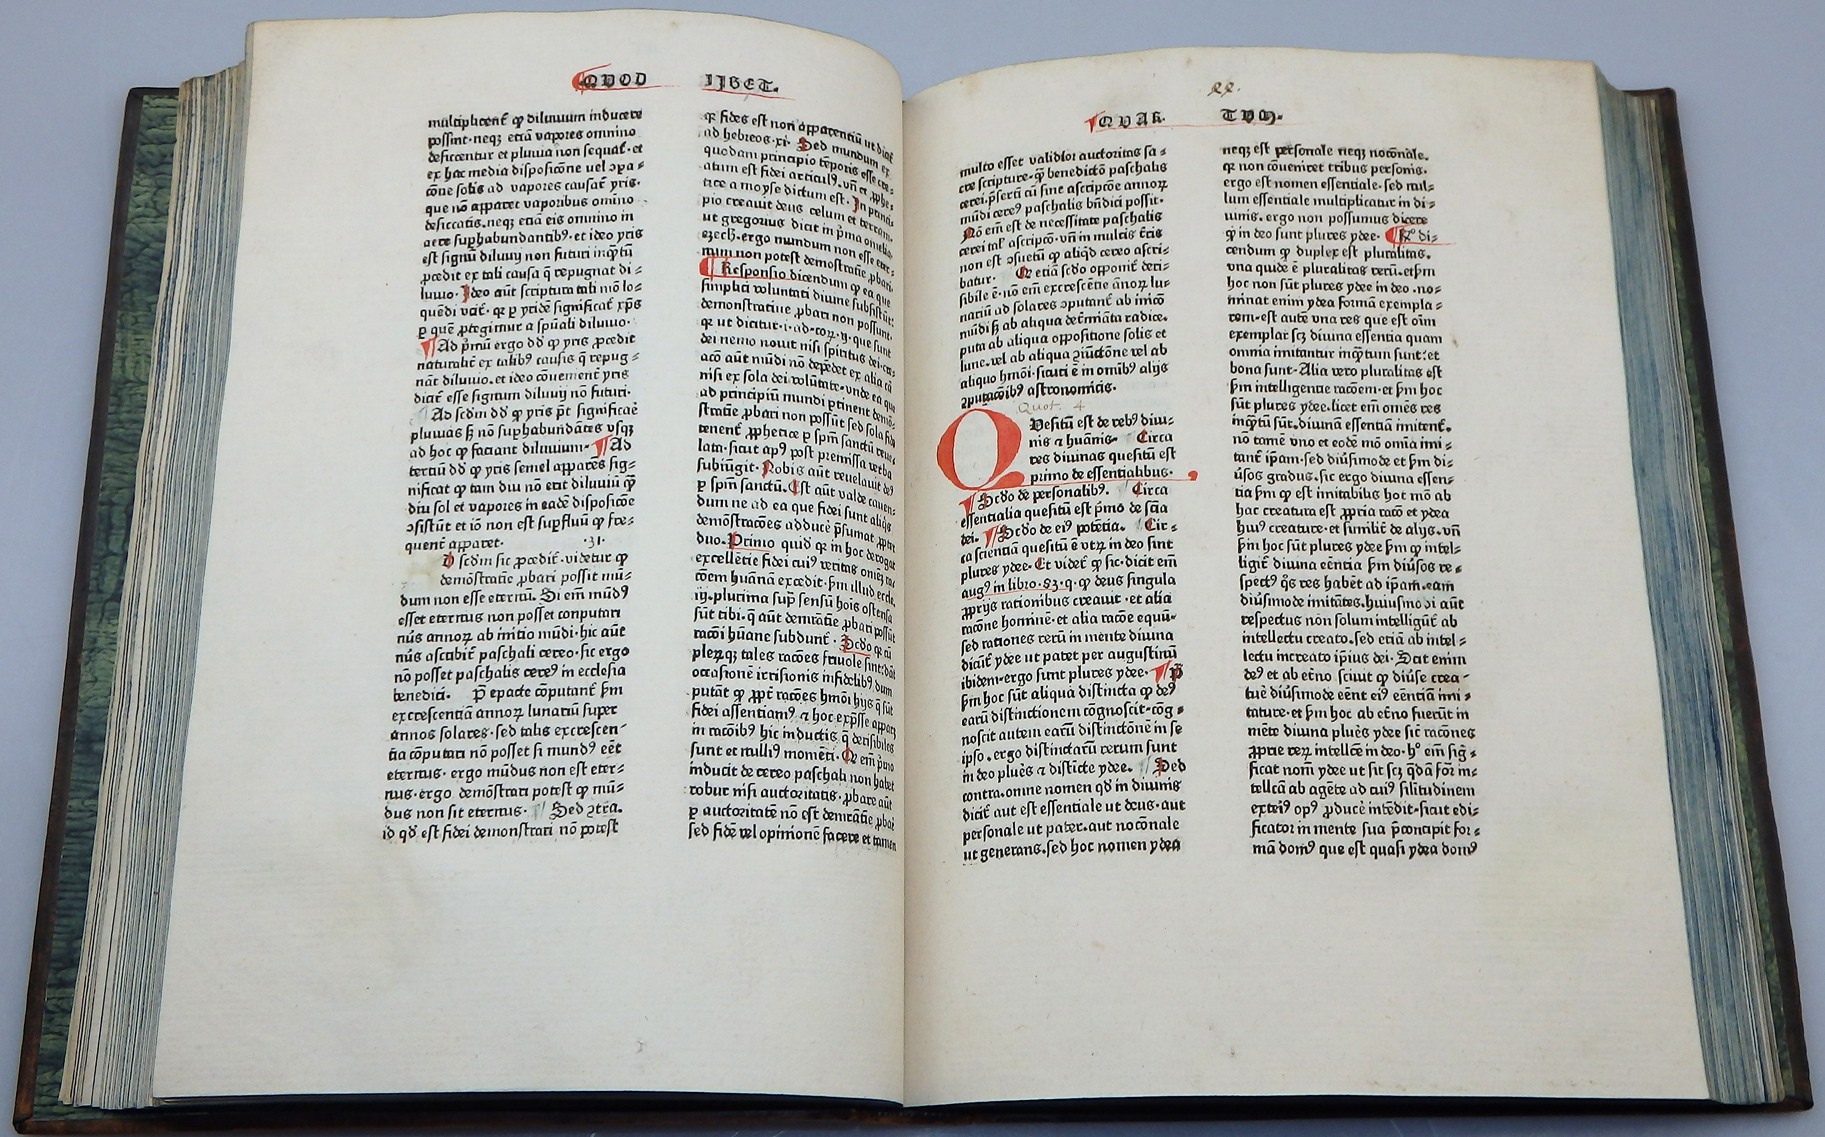 QVOD LIBET.
multiplicent᷑ ꝙ diluuium inducere
possint·neqꝫ etiā vapores omnino
deficcentur et pluuia non sequat᷑·et
ex hac media dispositōne vel ↄpa⸗
tōne solis ad vapores causat᷑ yris·
que nō apparet vaporibus omīno
desiccatis.neqꝫ etiā eis omnino in
aere suꝑhabundantibꝰ·et ideo yris
est signū diluuij non futuri inꝙtū
ꝓcedit ex tali causa q̄ repugnat di⸗
luuio·Ideo aūt scriptura tali mō lo⸗
quēdi vtit᷑·qꝛ ꝑ yridē significat᷑ xp̄s
ꝑ quē ꝓtegimur a sp̄uali diluuio·
Ad pͥmū ergo dd̄ ꝙ yris ꝓcedit
naturalit᷑ ex talibꝰ causis q̄ repug⸗
nāt diluuio.et ideo cōuenient᷑ yris
dicit᷑ esse signum diluuij nō futuri·
Ad scdm dd̄ ꝙ yris pōt significare
pluuias sꝫ nō suꝑhabundātes vsqꝫ
ad hoc ꝙ faciant diluuium· Ad
tertiū dd̄ ꝙ yris semel apparēs sig⸗
nificat ꝙ tam diu nō erit diluuiū ꝙ̄
diu sol et vapores in eadē dispositōe
ↄsistūt et iō non est suꝑfluū ꝙ fre⸗
quent᷑ apparet· ·31·
D scdm sic ꝓcedit᷑·videtur ꝙ
demōstratiē ꝓbari possit mū⸗
dum non esse eternū. Si em̄ mūdꝰ
esset eternus non posset conputari
nūs annoꝝ ab initio mūdi·hic aūt
nūs ascribit᷑ paschali cereo·sic ergo
nō posset paschalis cereꝰ in ecclesia
benedici. P̄ epacte cōputant᷑ ẜm
excrescentiā annoꝝ lunariū super
annos solares·sed talis excrescen⸗
tia cōputari nō posset si mundꝰ eēt
eternus· ergo mūdus non est eter⸗
nus·ergo demōstrari potest ꝙ mū⸗
dus non sit eternus· Sed ↄtra.
id qd̄ est fidei demonstrari nō potest
qꝛ fides est non apparentiū ut dicit᷑
ad hebreos·xi· Sed mundum ex
quodam principio tēporis esse cre⸗
atum est fidei articulꝰ.vn̄ et ꝓphe⸗
tice a moyse dictum est·In princi⸗
pio creauit deus celum et terram·
ut gregorius dicit in pͥma omelia
ezech·ergo mundum non esse eter⸗
num non potest demostratiē ꝓbari·
Responsio dicendum ꝙ ea que
simplici voluntati diuine subsistūt·
demonstratiue ꝓbari non possunt·
qꝛ ut dicitur·i·ad·coꝝ·ij·que sunt
dei nemo nouit nisi spiritus dei·cre⸗
acō aūt mūdi nō depēdet ex alia cā
nisi ex sola dei volūtate·vnde ea que
ad principiū mundi ꝑtinent demō⸗
stratiē ꝓbari non possūt sed sola fide
tenent᷑ ꝓphetice ꝑ spm̄ sanctū reue⸗
lata·sicut apꝰ post premissa verba
subiūgit·Nobis aūt reuelauit deꝰ
ꝑ spm̄ sanctū.Est aūt valde cauen⸗
dum ne ad ea que fidei sunt aliqͥs
demōstracōes adducē p̄sumat ꝓpter
duo·Primo quid qꝛ in hoc derogat
excellētie fidei cuiꝰ veritas omēꝫ ra⸗
cōem huānā excedit·ẜm illud eccle·
iij.plurima supͣ sensū hoīs ostensa
sūt tibi·q̄ aūt demratiē ꝓbari possūt
racōi hūane subdunt᷑· Scdo qꝛ cū
pleꝝqꝫ tales racōes friuole sint·dāt
occasionē irrisionis infidelibꝰ dum
putāt ꝙ ꝓpt᷑ racōes hmōi hijs q̄ sūt
fidei assentiamꝰ ⁊ hoc exp̄sse apparꝫ
in racōibꝰ hic inductis q̄ derisibiles
sunt et nulliꝰ momēti·Qꝛ em̄ pͥmo
inducit de cereo paschali non habet
robur nisi auctoritatis·ꝓbare aūt
ꝑ auctoritatē nō est demratiē ꝓbare
sed fidē vel opinionē facere et tamen
22·
QVAR· TVM·
multo esset validior auctoritas sa⸗
cre scripture·ꝙ̄ benedictō paschalis
cerei.p̄sertī cū sine ascripcōe annoꝝ
mūdi cereꝰ paschalis bn̄dici possit·
Nō em̄ est de necessitate paschalis
cerei tal᷑ ascripcō·vn̄ in multis t᷑ris
non est ↄsuetū ꝙ aliqͥd cereo ascri⸗
batur· Qꝛ etiā scdo opponit᷑ deri⸗
sibile ē·nō em̄ excrescētie annoꝝ lu⸗
nariū ad solares ↄputant᷑ ab inicō
mūdi sꝫ ab aliqua det᷑mīata radice.
puta ab aliqua oppositione solis et
lune.vel ab aliqua ↄiūctōne vel ab
aliquo hmōi·sicuti ē in omībꝰ alijs
ↄputacōibꝰ astronomicis·
Quot. 4
QVesitū est de rebꝰ diui⸗
nis ⁊ huānis· Circa
res diuinas quesitū est
primo de essentialibus·
Scdo de personalibꝰ. Circa
essentialia quesitū est pͥmo de scīa
dei· Scdo de eiꝰ potētia. Cir⸗
ca scientiā quesitū ē vtꝝ in deo sint
plures ydee·Et videt᷑ ꝙ sic·dicit em̄
augꝰ in libro·83·q·ꝙ deus singula
ꝓprijs rationibus creauit·et alia
racōne hominē·et alia racōe equū·
sed rationes rerū in mente diuina
dicūt᷑ ydee ut patet per augustinū
ibidem·ergo sunt plures ydee· P̄
ẜm hoc sūt aliqua distincta ꝙ deꝰ
earū distinctionem cōgnoscit·cōg⸗
noscit autem earū distinctōnē in se
ipso.ergo distinctarū rerum sunt
in deo plures ⁊ disticte ydee. Sed
contra.omne nomen qd̄ in diuinis
dicit᷑ aut est essentiale ut deus·aut
personale ut pater·aut nocōnale
ut generans.sed hoc nomen ydea
neqꝫ est personale neqꝫ nocōnale.
qꝛ non cōueniret tribus personis·
ergo est nomen essentiale·sed nul⸗
lum essentiale multiplicatur in di⸗
uinis. ergo non possumus dicere
ꝙ in deo sunt plures ydee· Rº di⸗
cendum ꝙ duplex est pluralitas.
vna quidē ē pluralitas rerū.et ẜm
hoc non sūt plures ydee in deo·no⸗
minat enim ydea formā exempla⸗
rem·est autē vna res que est oīm
exemplar scꝫ diuina essentia quam
omnia imitantur inꝙtum sunt·et
bona sunt·Alia vero pluralitas est
ẜm intelligentie racōem·et ẜm hoc
sūt plures ydee.licet em̄ omēs res
inꝙtū sūt.diuinā essentiā imitent᷑.
nō tamē vno et eodē mō omīa imi⸗
tant᷑ ip̄am·sed diūsimode et ẜm di⸗
ūsos gradus·sic ergo diuina essen⸗
tia ẜm ꝙ est imitabilis hoc mō ab
hac creatura est ꝓpria racō et ydea
huiꝰ creature·et similit᷑ de alijs·vn̄
ẜm hoc sūt plures ydee ẜm ꝙ intel⸗
ligit᷑ diuina eēntia ẜm diūsos re⸗
spectꝰ qͦs res habēt ad ip̄am·eam
diūsimode imitātes.huiusmodi aūt
respectus non solum intelligūt᷑ ab
intellectu creato·sed etiā ab intel⸗
lectu increato ip̄ius dei·Scit enim
deꝰ et ab et᷑no sciuit ꝙ diūse crea⸗
tue diūsimode eēnt eiꝰ eēntiā imi⸗
tature·et ẜm hoc ab et᷑no fuerūt in
mēte diuina plues ydee sic racōnes
ꝓprie reꝝ intellce in deo·hº em̄ sig⸗
ficat nom̄ ydee ut sit scꝫ q̄dā forͣ in⸗
tellcā ab agēte ad cuiꝰ silitudinem
exteiꝰ opꝰ ꝓducē intēdit·sicut edi⸗
ficator in mente sua p̄concipit for⸗
mā domꝰ que est quasi ydea domꝰ